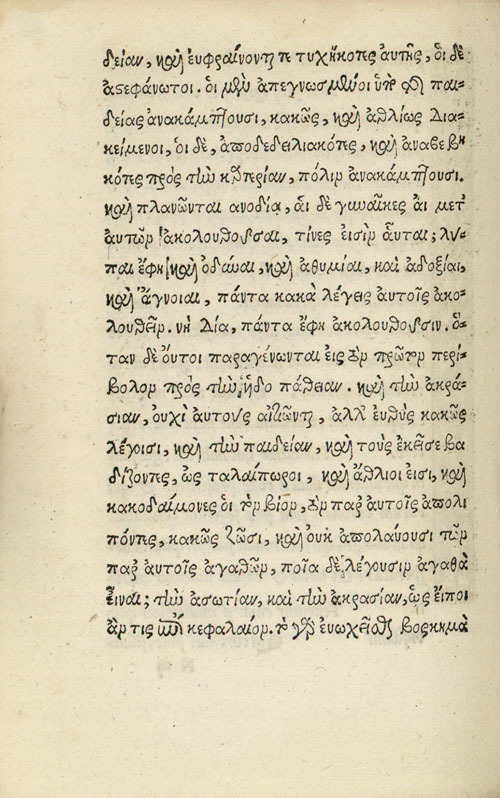 δείαν, καὶ ἐυφραίνονται τετυχηκότες ἀυτῆς, ὁι δὲ
ἀστεφάνωτοι. ὁι μὲν ἀπεγνωσμένοι ὑπὸ τῆς παι-
δείας ἀνακάμπτουσι, κακῶς, καὶ ἀθλίως δια-
κείμενοι, ὁι δὲ, ἀποδεδειλιακότες, καὶ ἀναβεβη-
κότες πρὸς τὴν καρτερίαν, πάλιν ἀνακάμπτουσι.
καὶ πλανῶνται ἀνοδία, ἁι δὲ γυναῖκες ἁι μετ'
ἀυτῶν ἀκολουθοῦσαι, τίνες εἰσὶν ἇυται; λύ-
παι ἔφη, καὶ ὀδύναι, καὶ ἀθυμίαι, καὶ ἀδοξίαι,
καὶ ἄγνοιαι, πάντα κακὰ λέγεις ἀυτοῖς ἀκο-
λουθεῖν. νὴ Δία, πάντα ἔφη ἀκολουθοῦσιν. ὅ-
ταν δὲ ὅυτοι παραγένωνται εἰς τὸν πρῶτον περί-
βολον πρὸς τὴν ἡδυπάθειαν. καὶ τὴν ἀκρα-
σίαν, ὀυχὶ ἀυτοὺς αἰτιῶνται, ἀλλ' ἐυθὺς κακῶς
λέγουσι, καὶ τὴν παιδείαν, καὶ τοὺς ἐκεῖσε βα
δίζοντες, ὡς ταλαίπωροι, καὶ ἄθλιοι εἰσι, καὶ
κακοδαίμονες ὁι τὸν βίον, τὸν παρ' ἀυτοῖς ἀπολι
πόντες, κακῶς ζῶσι, καὶ ὀυκ ἀπολαύουσι τῶν
παρ' ἀυτοῖς ἀγαθῶν, ποῖα δὲ λέγουσιν ἀγαθὰ
εἶναι; τὴν ἀσωτίαν, καὶ τὴν ἀκρασίαν, ὡς ἔιποι
ἄν τις ἐπὶ κεφαλαίου. τὸ γὰρ ἐυωχεῖσθαι βοσκημά